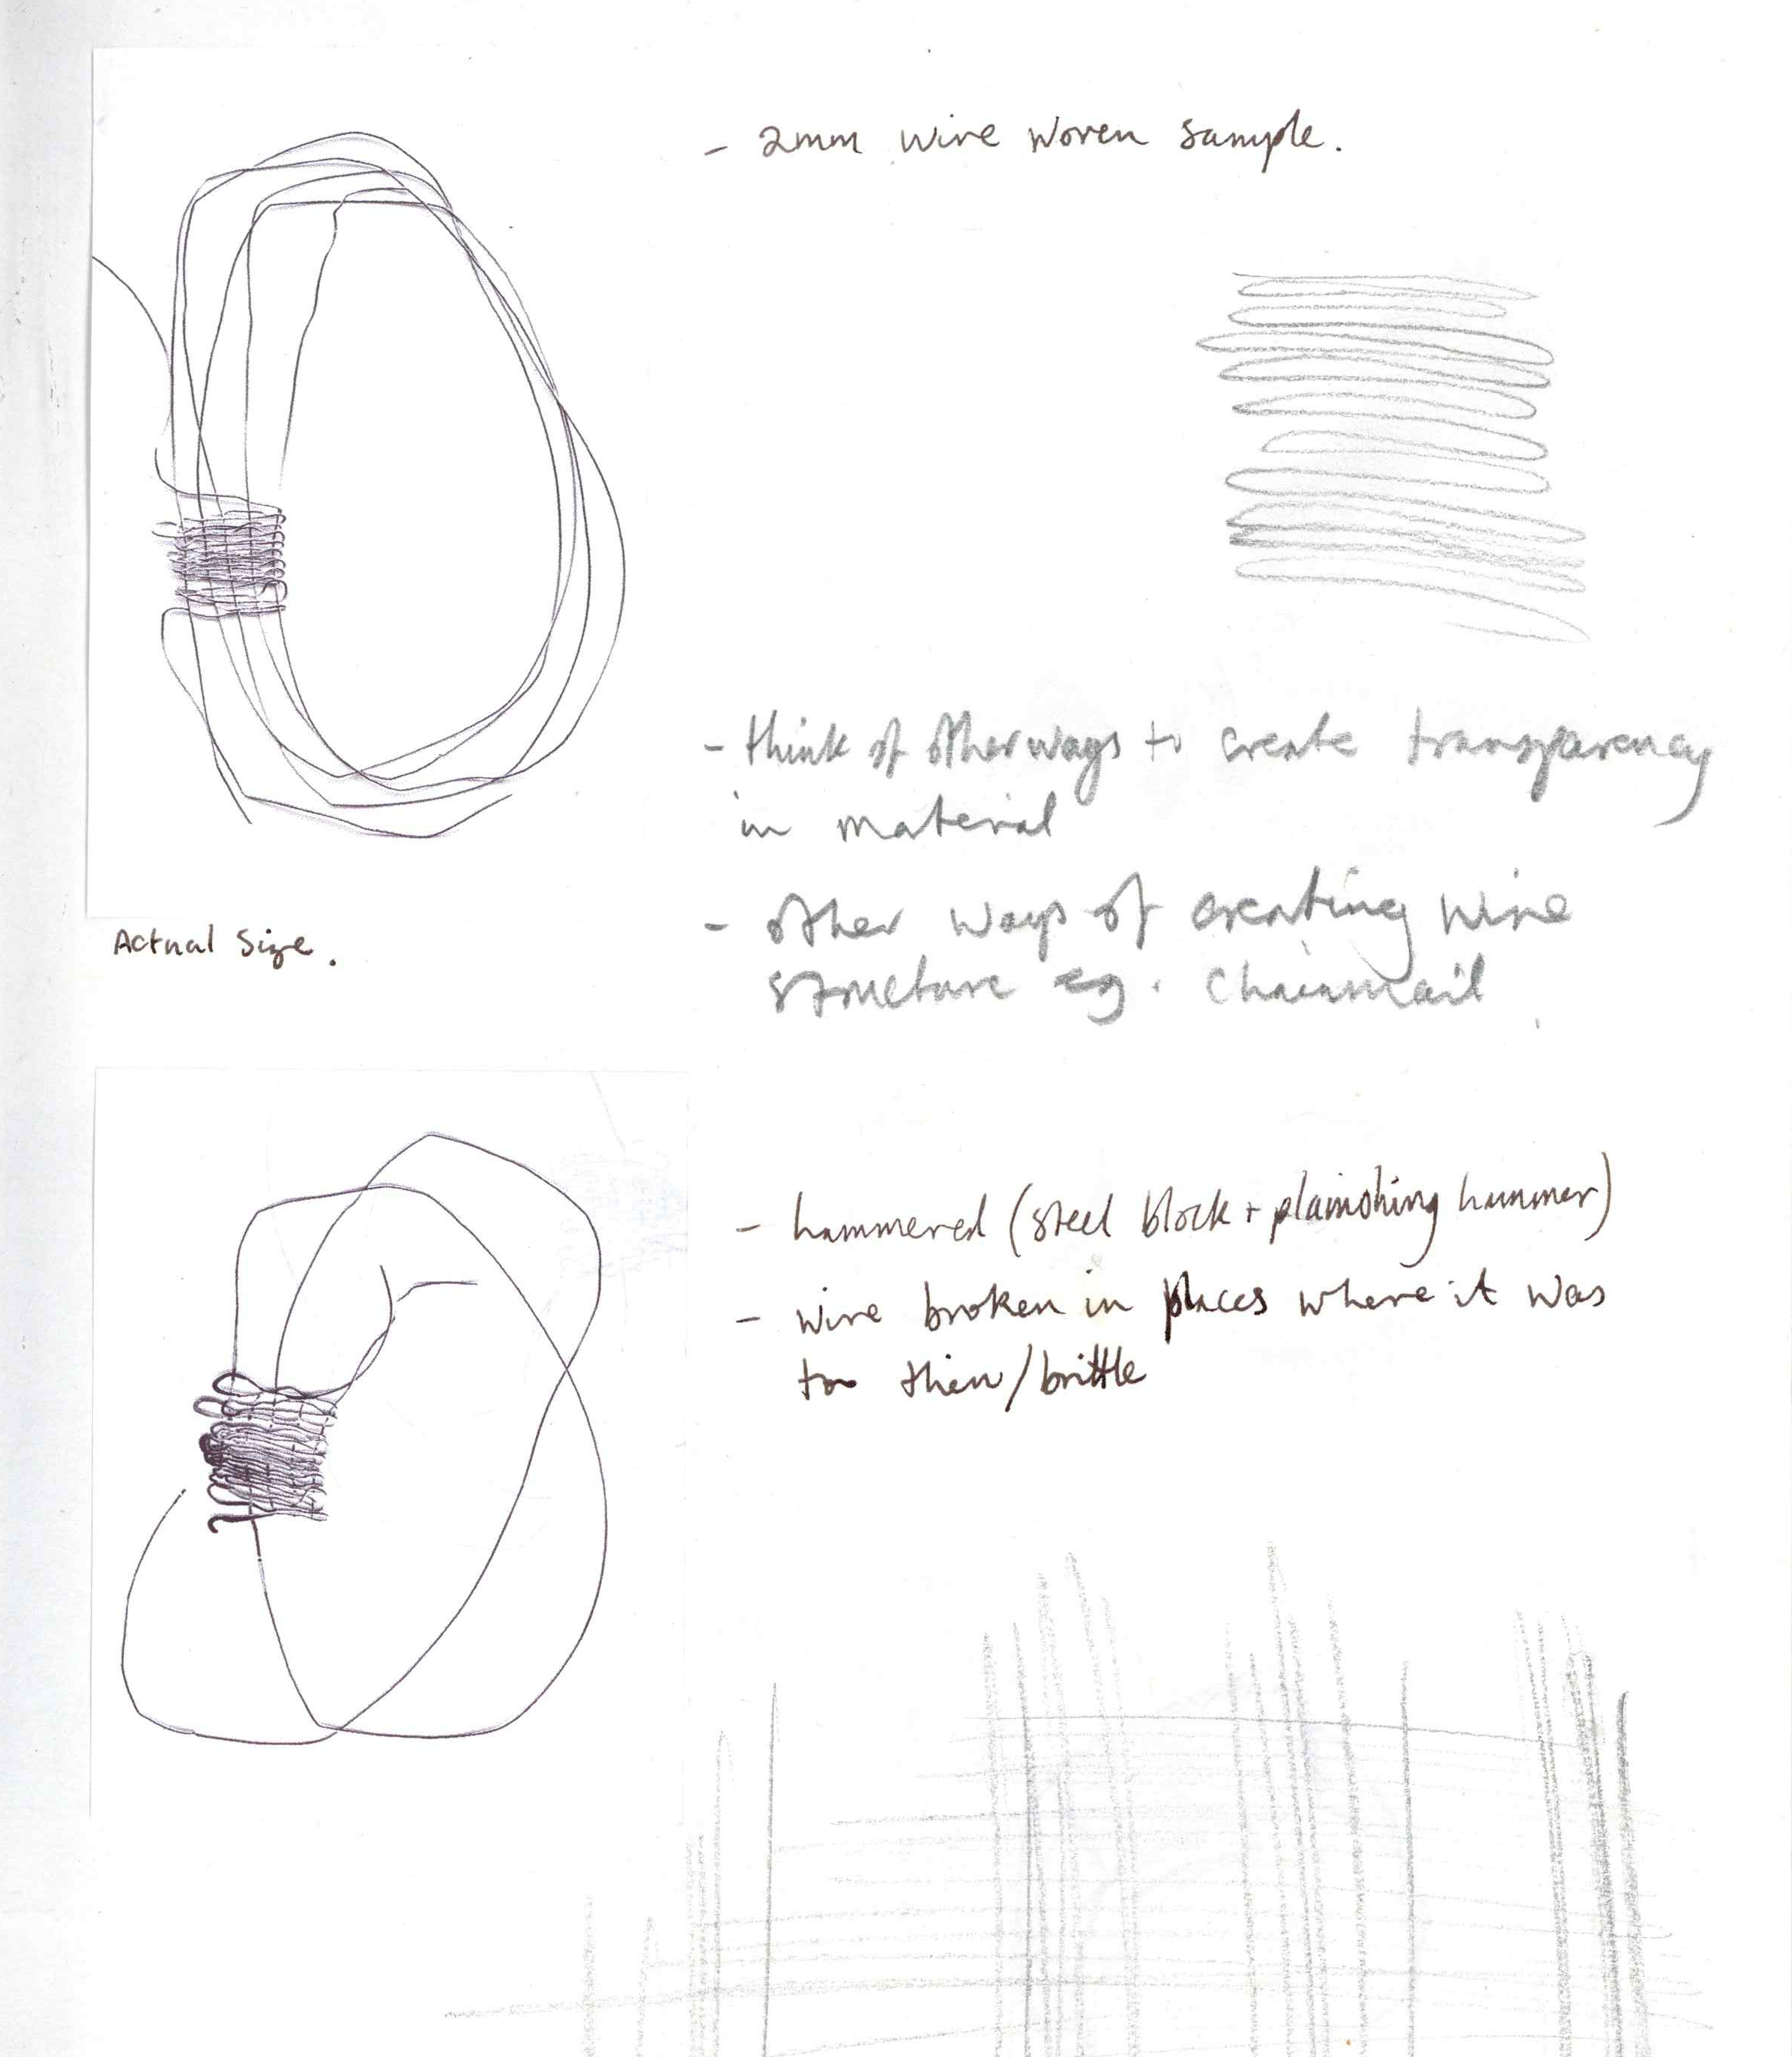 - 2mm wire woven sample.
- think of other ways to create transparency
in material
- other ways of creating wire
structure eg. chainmail
Actual Size.
- hammered (steel block + plainishing hammer)
- wire broken in places where it was
too thin/brittle